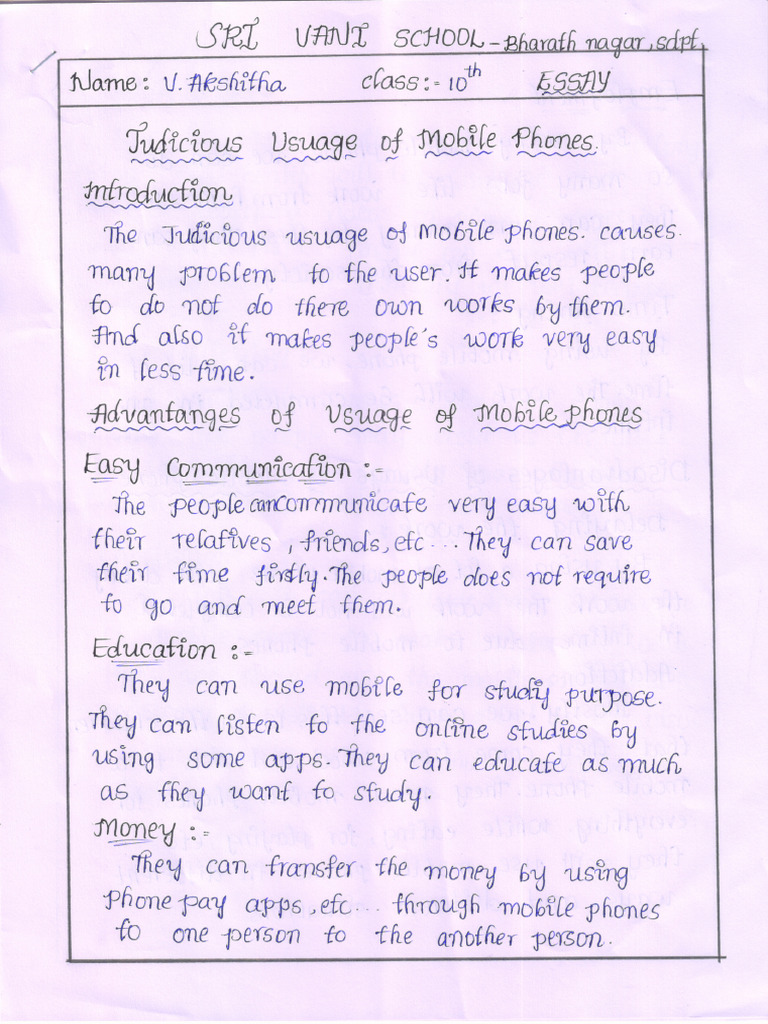 SRI VANI SCHOOL - Bharath nagar, sdpt,
Name: V. Akshitha class:- 10th ESSAY
Judicious Usuage of Mobile Phones.
Introduction
The Judicious usuage of mobile phones. causes.
many problem to the user. It makes people
to do not do there own works by them.
And also it makes people's work very easy
in less time.
Advantanges of Usuage of Mobile phones
Easy Communication :-
The people can communicate very easy with
their relatives, friends, etc... They can save
their time firstly. The people does not require
to go and meet them.
Education :-
They can use mobile for study purpose.
They can listen to the online studies by
using some apps. They can educate as much
as they want to study.
Money :-
They can transfer the money by using
phone pay apps, etc... through mobile phones
to one person to the another person.